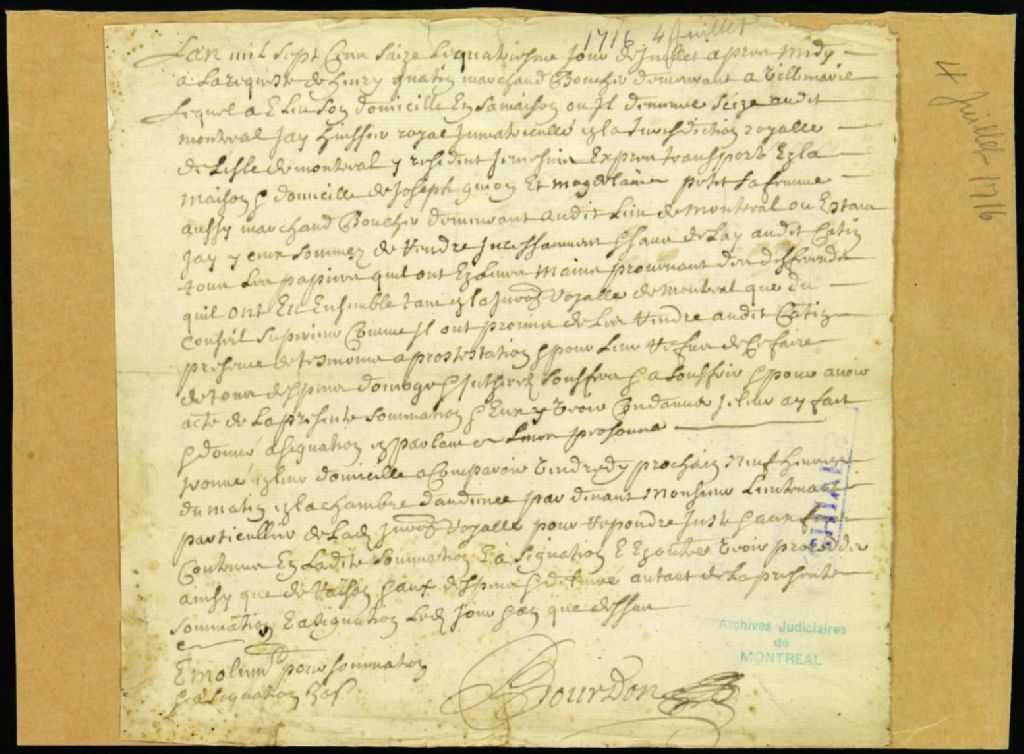 1716 4 Juillet
Lan mil sept Cens Saize Lequatriesme Jour de Juillet apres midy
a Lareqveste de henry Catin marchand Boucher demeurant a Villemarie
Lequel a Eleu Son domicille En Samaison ou Il demeure Scize audit
montreal Jay huissier royal Jmatriculé en la Jurisdiction royalle
de Lisle de montreal y resident Exprez transporté En la
maison & domicille de Joseph guion Et magdelaine petit Sa femme
aussy marchand Boucher demeurant audit Lieu de montreal ou Estant
Jay y ceux Sommez de Rendre Incessamment & Sans delay audit Catin
tous Les papiers quil ont En Leurs mains provenant des differends
quil ont Eu Ensemble tant en la Royalle de montreal que du
Conseil Superieur Comme Il ont promis de Les Rendre audit Catin
presence de tesmoins a prostestation & pour Leur Refus de Ce faire
de tous despens domage & Interest Souffers & a Souffrir & pour avoir
acte de La presente Sommation & Eux y Voir Condamner Je leur ay fait
& donné assignation en parlant a Leurs personne
donné en leur domicille a Comparoir Vendredy prochain Neuf heures
du matin en la chambre daudience par devant Monsieur Lieutenant
particullier de Lad Royalle pour Repondre Juste & aux
Contenue En Ladite Sommation & assignation & En outre Voir proceder
ainsy que de Raison & aux despens & delaissé autant de La presente
Sommation & assignation Led Jour & an que dessus
Emolumt pour sommation
& assignation
Bourdon
4 Juillet 1716
Archives Judiciaires
de
MONTREAL